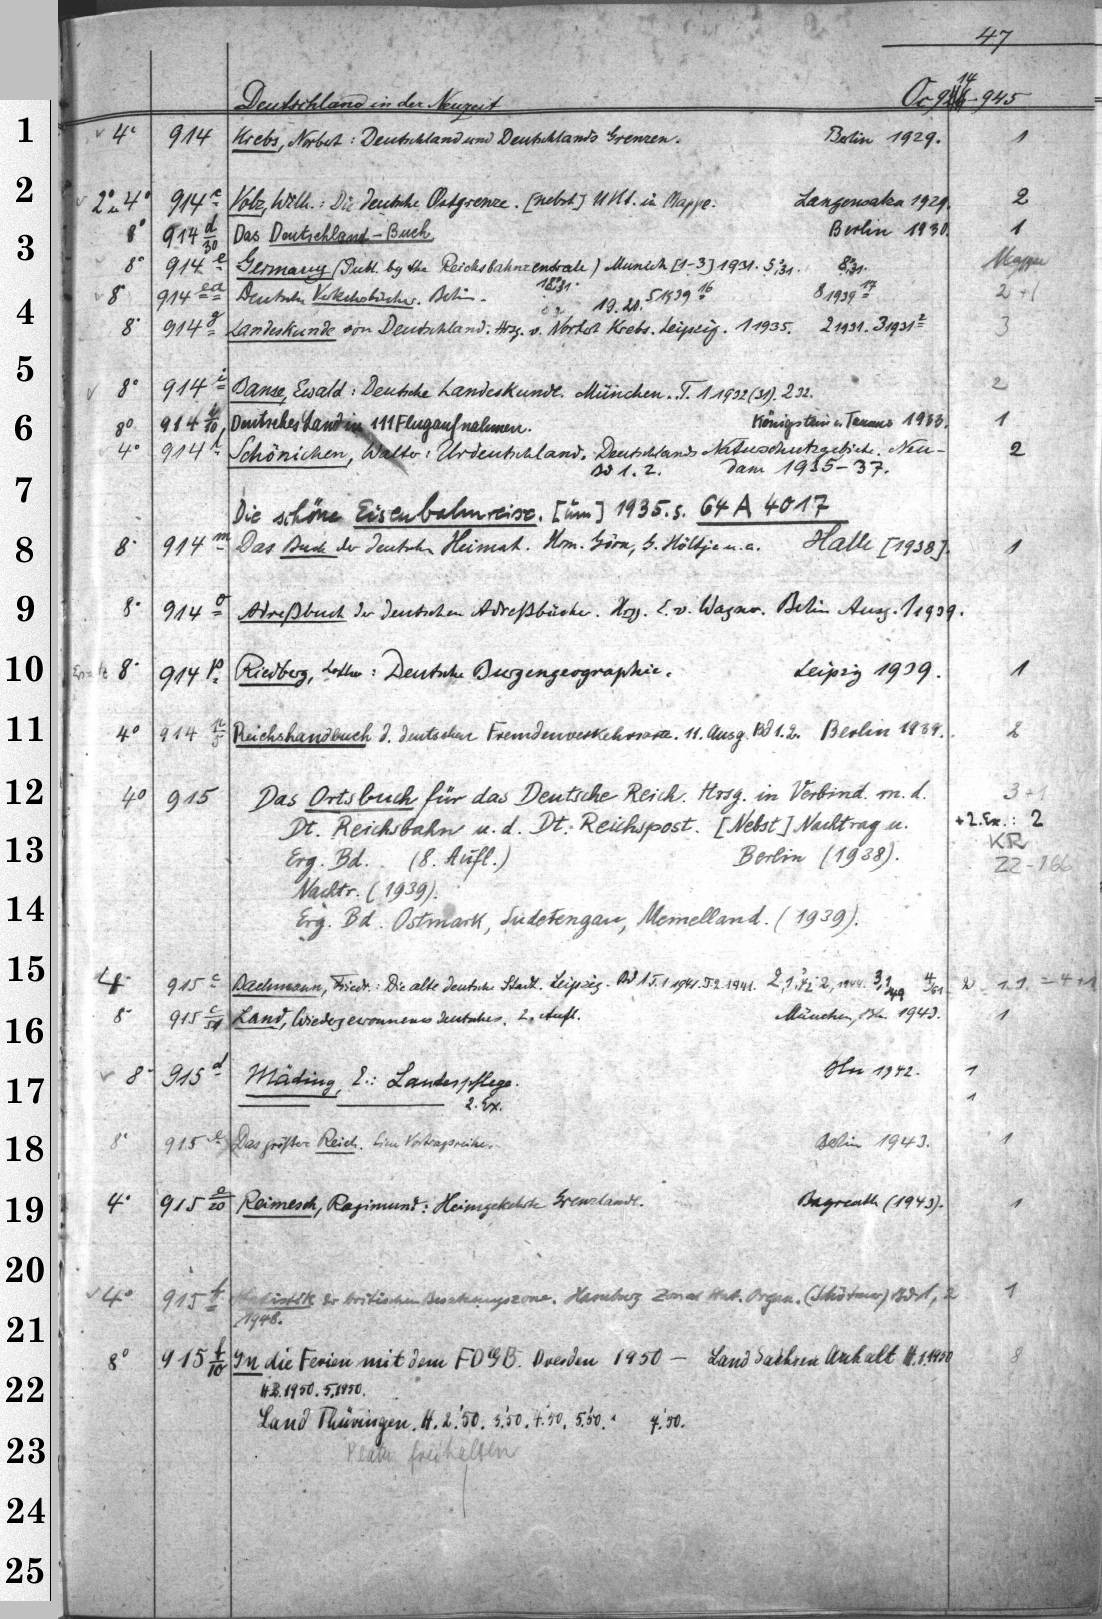 47
Deutschland in der Neuzeit Oc 914-945
1 4° 914 Krebs, Norbert: Deutschland und Deutschlands Grenzen. Berlin 1929. 1
2 2° u 4° 914 c Volz, Wilh.: Die deutsche Ostgrenze. [nebst] in Mappe. Langensalza 1929. 2
8° 914 d/30 Das Deutschland-Buch Berlin 1930. 1
3 8° 914 e Germany (Publ. by the Reichsbahnzentrale) Munich [1-3] 1931. 5,31. 8,31. Mappe
18,31.
8° 914 ea Deutsche Verkehrsbücher. Berlin. 19. 21. 5 1939 16 8 1939 17 2+1
4 8° 914 g Landeskunde von Deutschland. Hrsg. v. Norbert Krebs. Leipzig. 1 1935. 2 1931. 3 1931 2 3
5 8° 914 i Banse, Ewald: Deutsche Landeskunde. München. T. 1 1932 (31). 2 32. 2
6 8° 914 k/10, Deutsches Land in 111 Flugaufnahmen. Königstein i. Taunus 1933. 1
4° 914 l Schönichen, Walter: Urdeutschland. Deutschlands Naturschutzgebiete. Neu- 2
Bd 1. 2. dam 1935-37.
7 Die schöne Eisenbahnreise. [um] 1935. s. 64 A 4017
8 8° 914 m Das Buch der deutschen Heimat. Hrm. Görn, G. Höltje u. a. Halle [1938]. 1
9 8° 914 o Adreßbuch der deutschen Adreßbücher. Hrsg. E. v. Wagner. Berlin Ausg. 1 1939.
10 8° 914 p Riedberg, Lothar: Deutsche Burgengeographie. Leipzig 1939. 1
11 4° 914 Reichshandbuch d. deutschen Fremdenverkehrsorte. 11. Ausg. Bd 1.2. Berlin 1939. 2
12 4° 915 Das Ortsbuch für das Deutsche Reich. Hrsg. in Verbind. m. d. 3+1
Dt. Reichsbahn u. d. Dt. Reichspost. [Nebst] Nachtrag u. +2.Ex.: 2
KR
13 Erg. Bd. (8. Aufl.) Berlin (1938). 22-166
Nachtr. (1939).
14 Erg. Bd. Ostmark, Sudetengau, Memelland. (1939).
15 4° 915 c Bachmann, Friedr.: Die alte deutsche Stadt. Leipzig. Bd 1 T.1 1941. T.2 1941.
16 8° 915 c/51 Land, Wiedergewonnenes deutsches. 2. Aufl. München, Bln. 1943. 1
17 8° 915 d Mäding, E.: Landespflege. Bln 1942. 1
2. Ex. 1
18 8° 915 e Das größere Reich. Eine Vortragsreihe. Berlin 1943. 1
19 4° 915 e/20 Reimesch, Ragimund: Heimgekehrte Grenzlande. Bayreuth (1943). 1
20
4° 915 f Statistik der britischen Besatzungszone. Hamburg Zonal Stat. Organ. Bd 1, 2 1
1948.
21 8° 915 f/10 In die Ferien mit dem FDGB. Dresden 1950 - Land Sachsen Anhalt H. 1.1950 8
22 H 2. 1950. 5,1950.
Land Thüringen. H. 2.'50. 3.'50. 4.'50. 5.'50. 7.'50.
23 freihalten
24
25